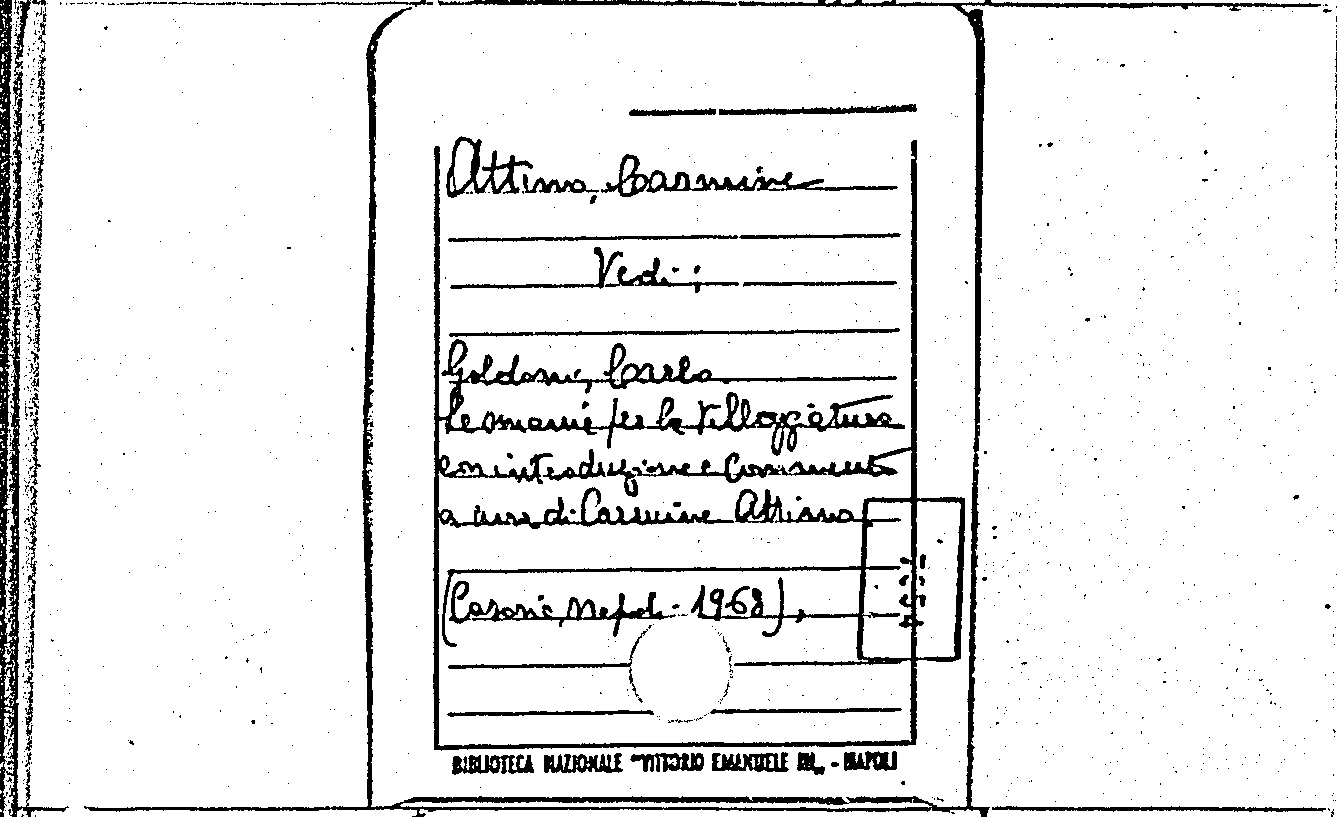 Attino, Carmine
Vedi:
Goldoni, Carlo.
Le smanie per la Villeggiatura
con introduzione e commento
a cura di Carmine Attino
(Casoria, Napoli - 1968),
BIBLIOTECA NAZIONALE "VITTORIO EMANUELE III" - NAPOLI